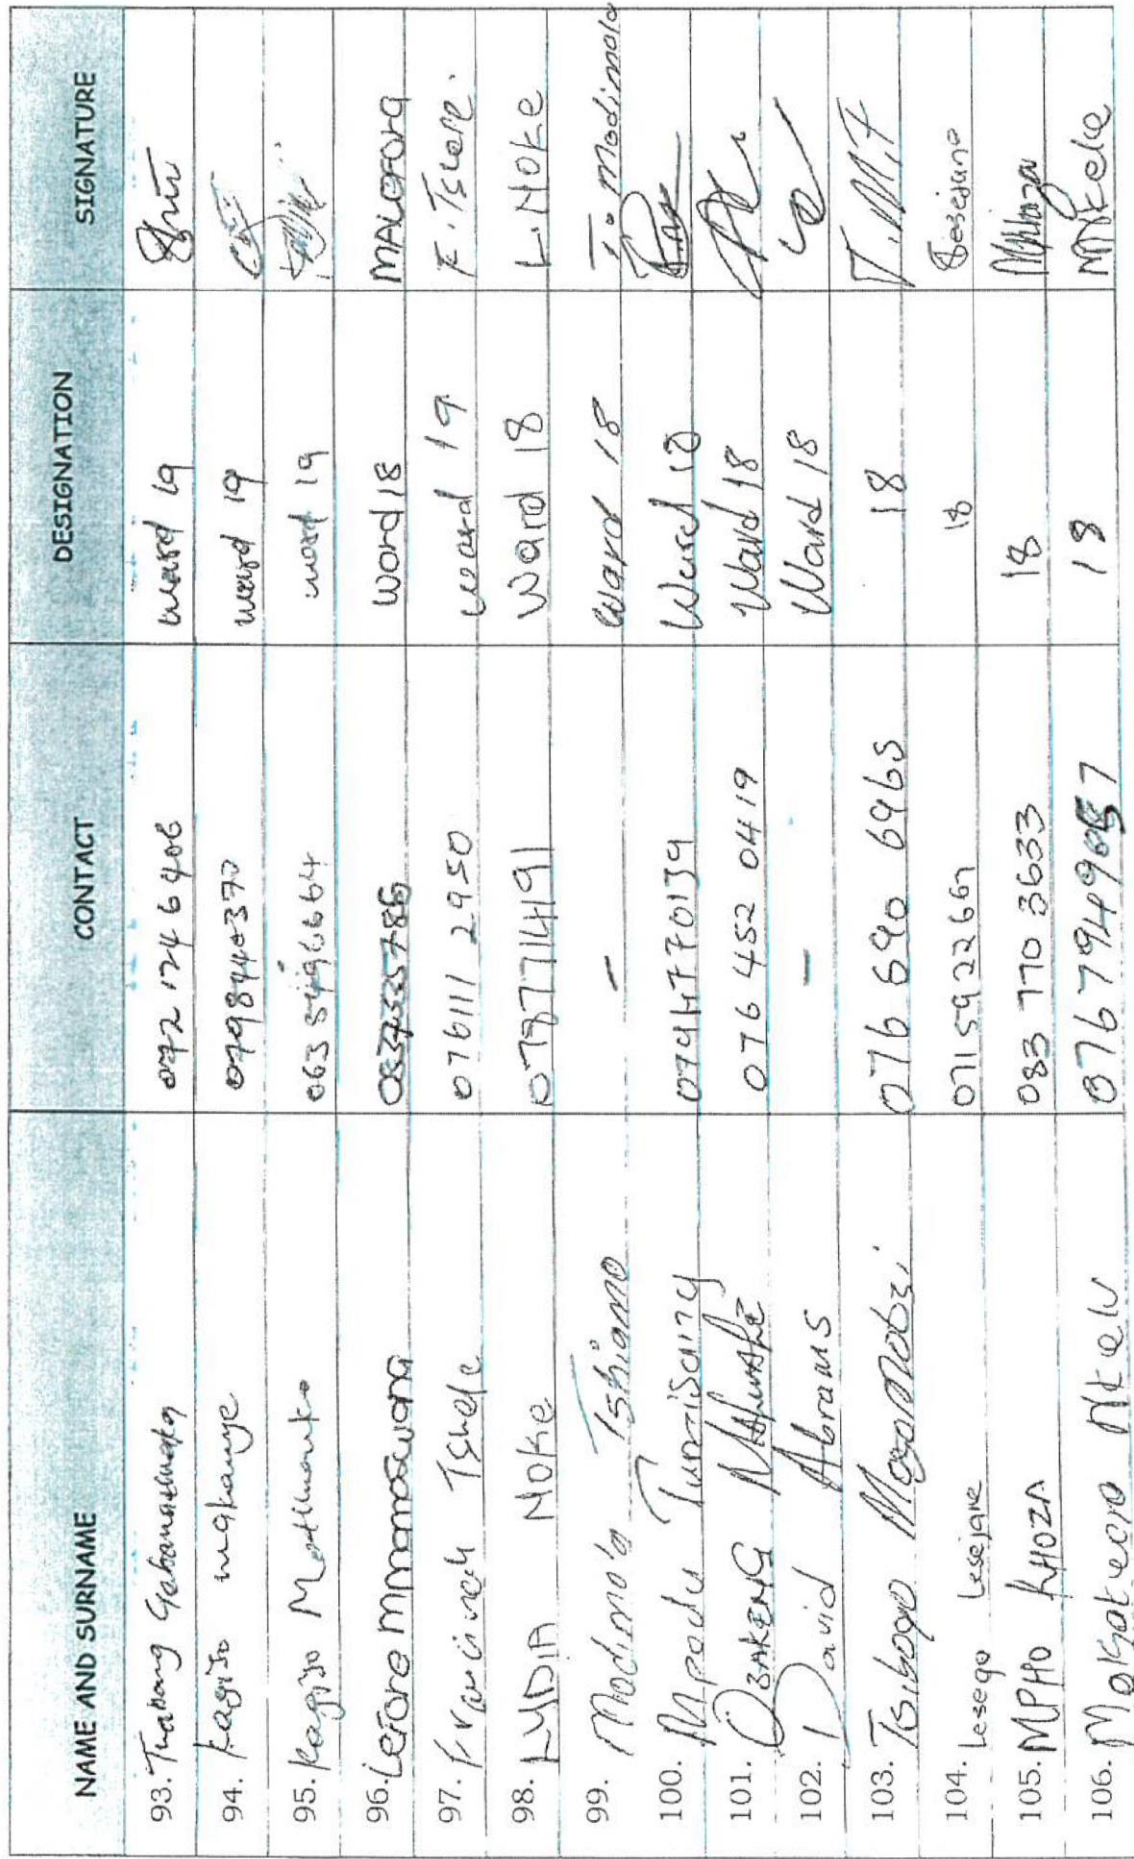 NAME AND SURNAME CONTACT DESIGNATION SIGNATURE
93. Thabang 072 174 6406 ward 19
94. Kagiso makanye 0798440370 ward 19
95. Kagiso 063 5496664 ward 19
96. Lefore Mmamasuwana word 18 MALEFORA
97. Francinah Tshele 076111 2950 ward 19 F. Tsele.
98. LYDIA MOKE 0787714191 Ward 18 L. MOKE
99. Modimola Tshiamo - Ward 18 T. Modimola
100. Mpedu Tumisang 07414770139 Ward 18
101. OBAKENG 076 452 0419 Ward 18
102. David Abrams - Ward 18
103. Tsibogo Mogomotsi 076 690 6965 18 T.M.T
104. Lesego Lesejane 0715922667 18 Lesejane
105. MPHO KHOZA 083 770 3633 18 MKhoza
106. 18